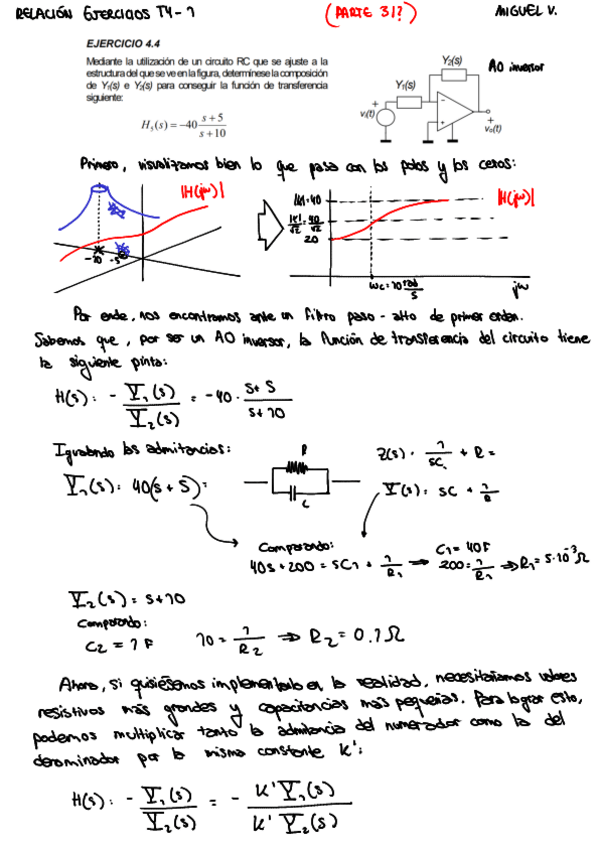 RELACIÓN EJERCICIOS T4-1 (PARTE 31?) MIGUEL V.
EJERCICIO 4.4
Mediante la utilización de un circuito RC que se ajuste a la
estructura del que se ve en la figura, determínese la composición
de Y₁(s) e Y₂(s) para conseguir la función de transferencia
siguiente:
H₅(s) = -40 (s+5)/(s+10)
Y₂(s)
AO inversor
Y₁(s)
vᵢ(t)
vₒ(t)
Primero, visualizamos bien lo que pasa con los polos y los ceros:
|H(jω)|
-10 -5
|K|=40
|K|/√2 = 40/√2
20
|H(jω)|
ωc=10 rad/s
jω
Por ende, nos encontramos ante un filtro paso-alto de primer orden.
Sabemos que, por ser un AO inversor, la función de transferencia del circuito tiene
la siguiente pinta:
H(s) = - Y₁(s)/Y₂(s) = -40 · (s+5)/(s+10)
Igualando las admitancias:
Y₁(s) = 40(s+5) =
R
C
Z(s) = 1/(sC) + R =
Y(s) = sC + 1/R
Comparando:
40s+200 = sC₁ + 1/R₁ → C₁ = 40F
200 = 1/R₁ ⇒ R₁ = 5·10⁻³ Ω
Y₂(s) = s+10
Comparando:
C₂ = 1 F 10 = 1/R₂ ⇒ R₂ = 0.1Ω
Ahora, si quisiésemos implementarlo en la realidad, necesitaríamos valores
resistivos más grandes y capacitancias más pequeñas. Para lograr esto,
podemos multiplicar tanto la admitancia del numerador como la del
denominador por la misma constante K':
H(s) = - Y₁(s)/Y₂(s) = - K'Y₁(s)/K'Y₂(s)